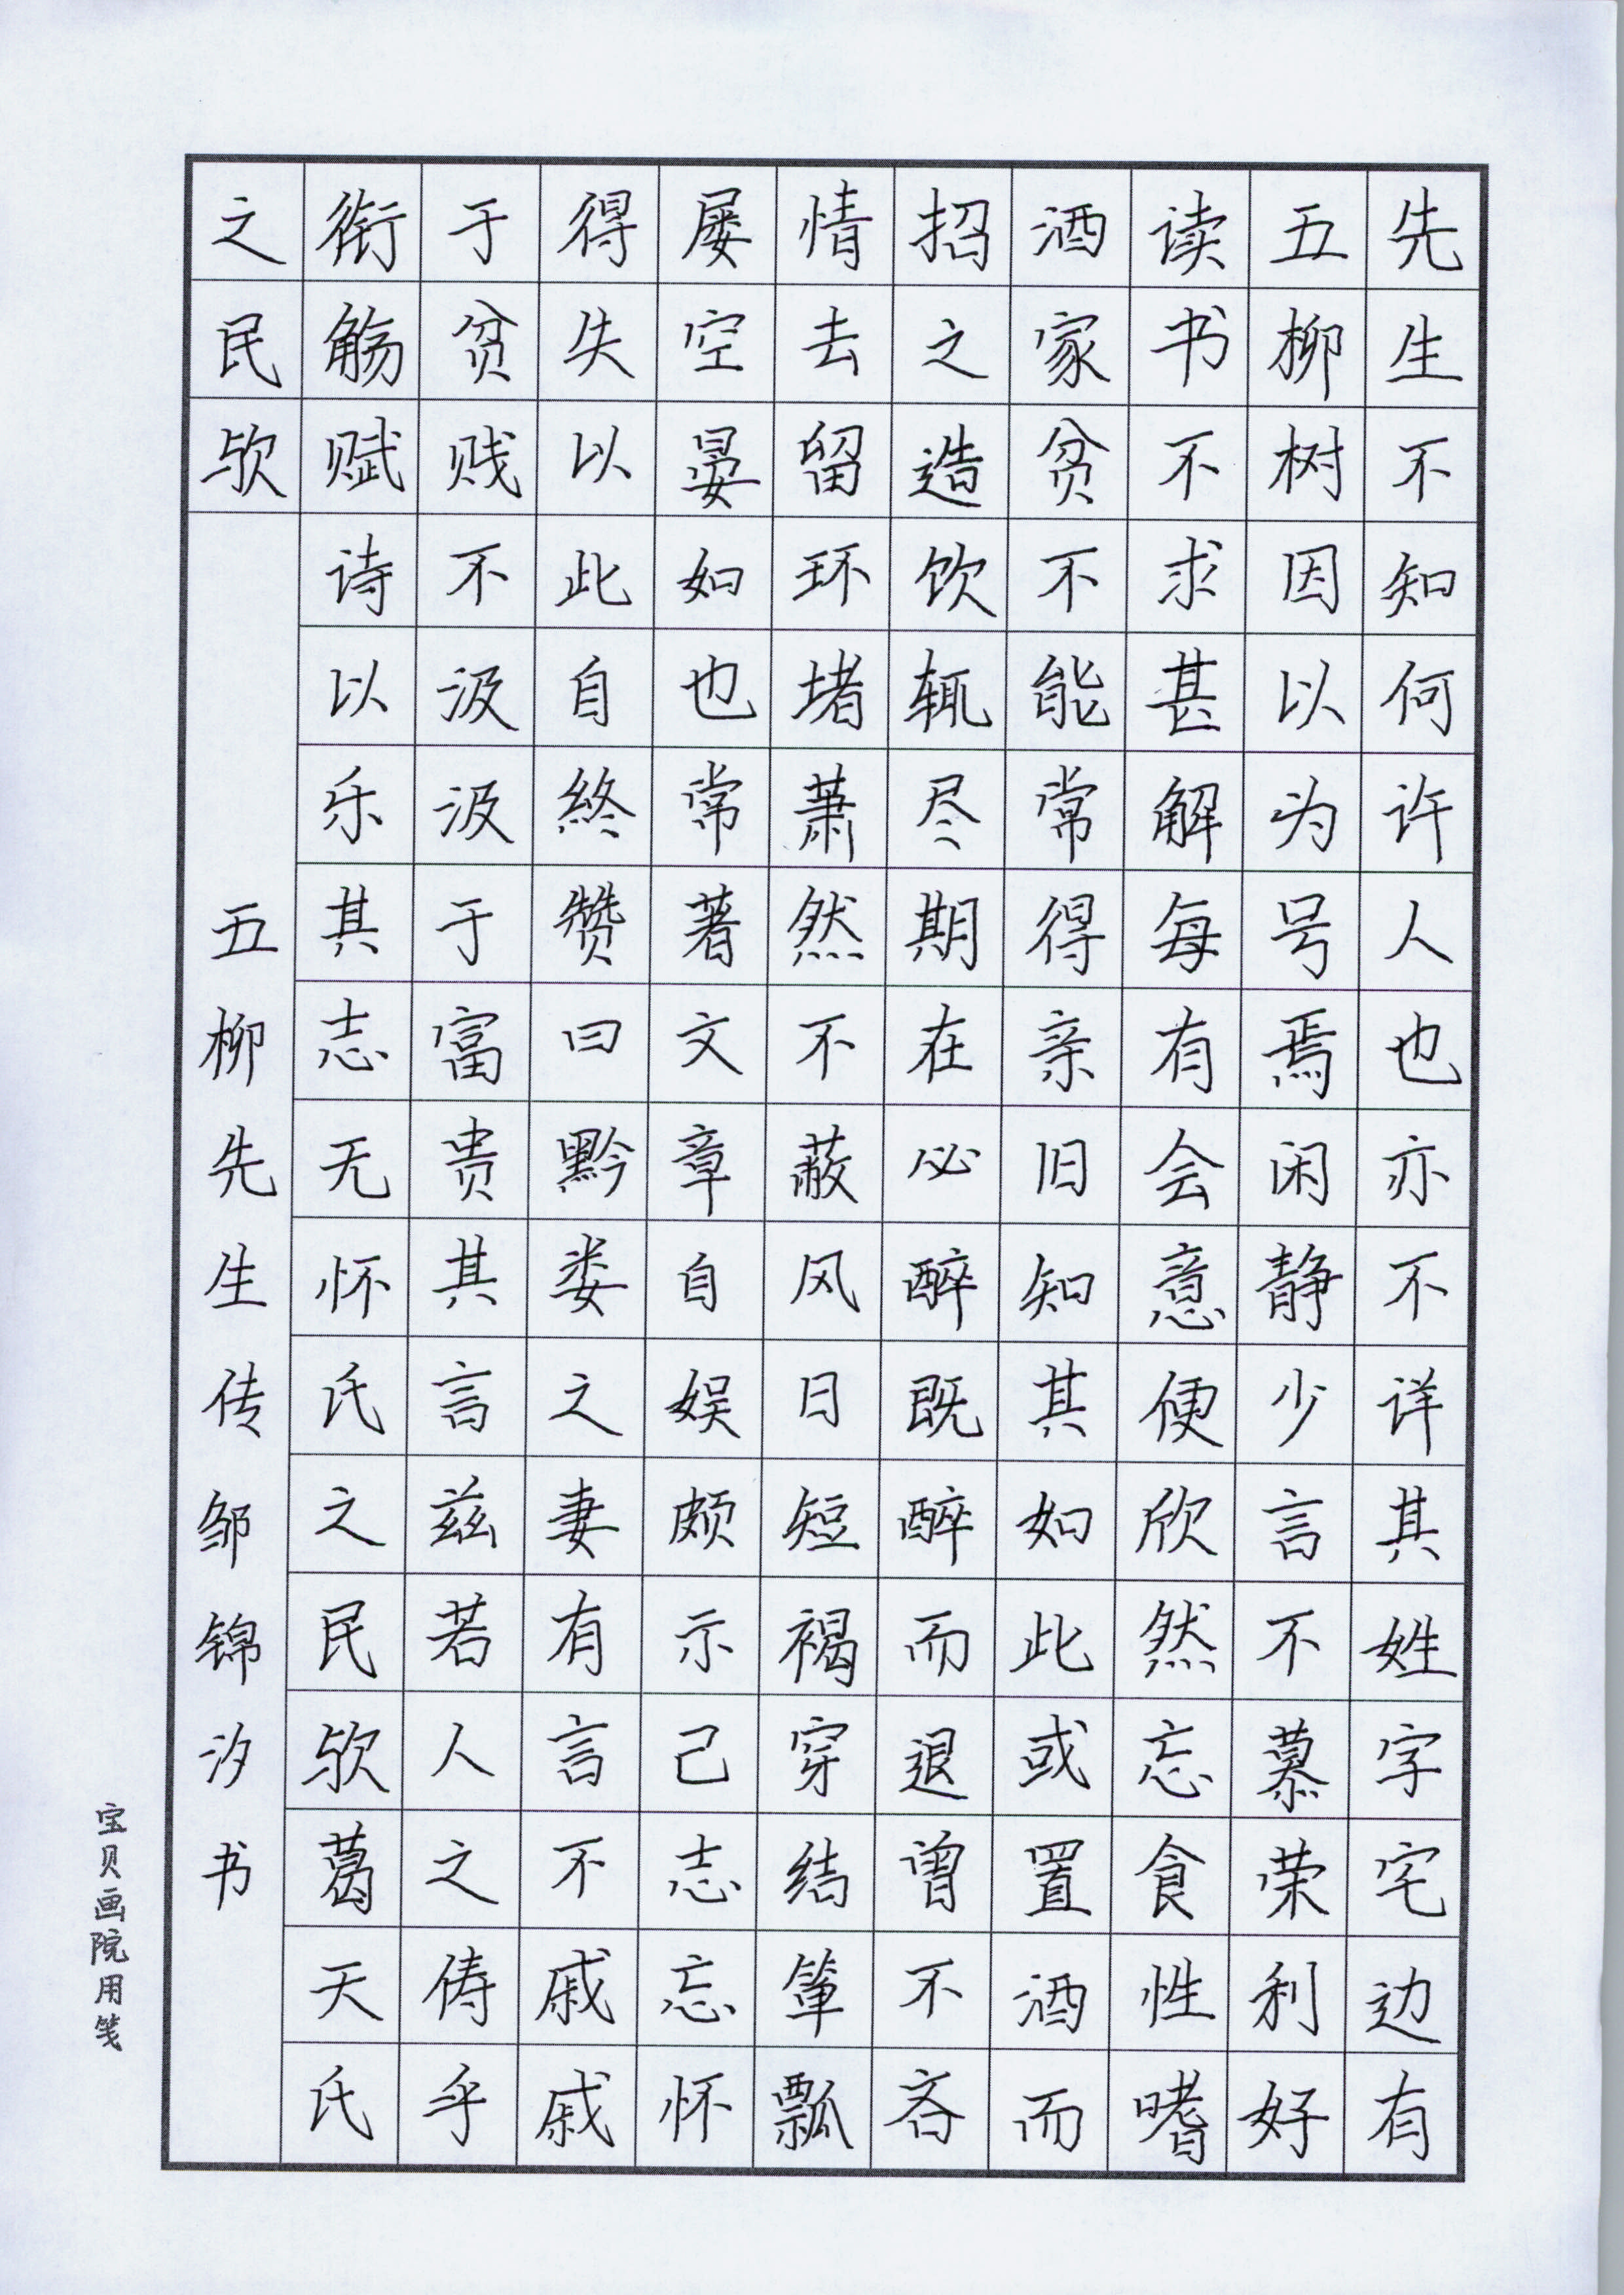 先生不知何许人也亦不详其姓字宅边有
五柳树因以为号焉闲静少言不慕荣利好
读书不求甚解每有会意便欣然忘食性嗜
酒家贫不能常得亲旧知其如此或置酒而
招之造饮辄尽期在必醉既醉而退曾不吝
情去留环堵萧然不蔽风日短褐穿结箪瓢
屡空晏如也常著文章自娱颇示己志忘怀
得失以此自終赞曰黔娄之妻有言不戚戚
于贫贱不汲汲于富贵其言兹若人之俦乎
衔觞赋诗以乐其志无怀氏之民欤葛天氏
之民欤
五柳先生传邹锦汐书
宝贝画院用笺